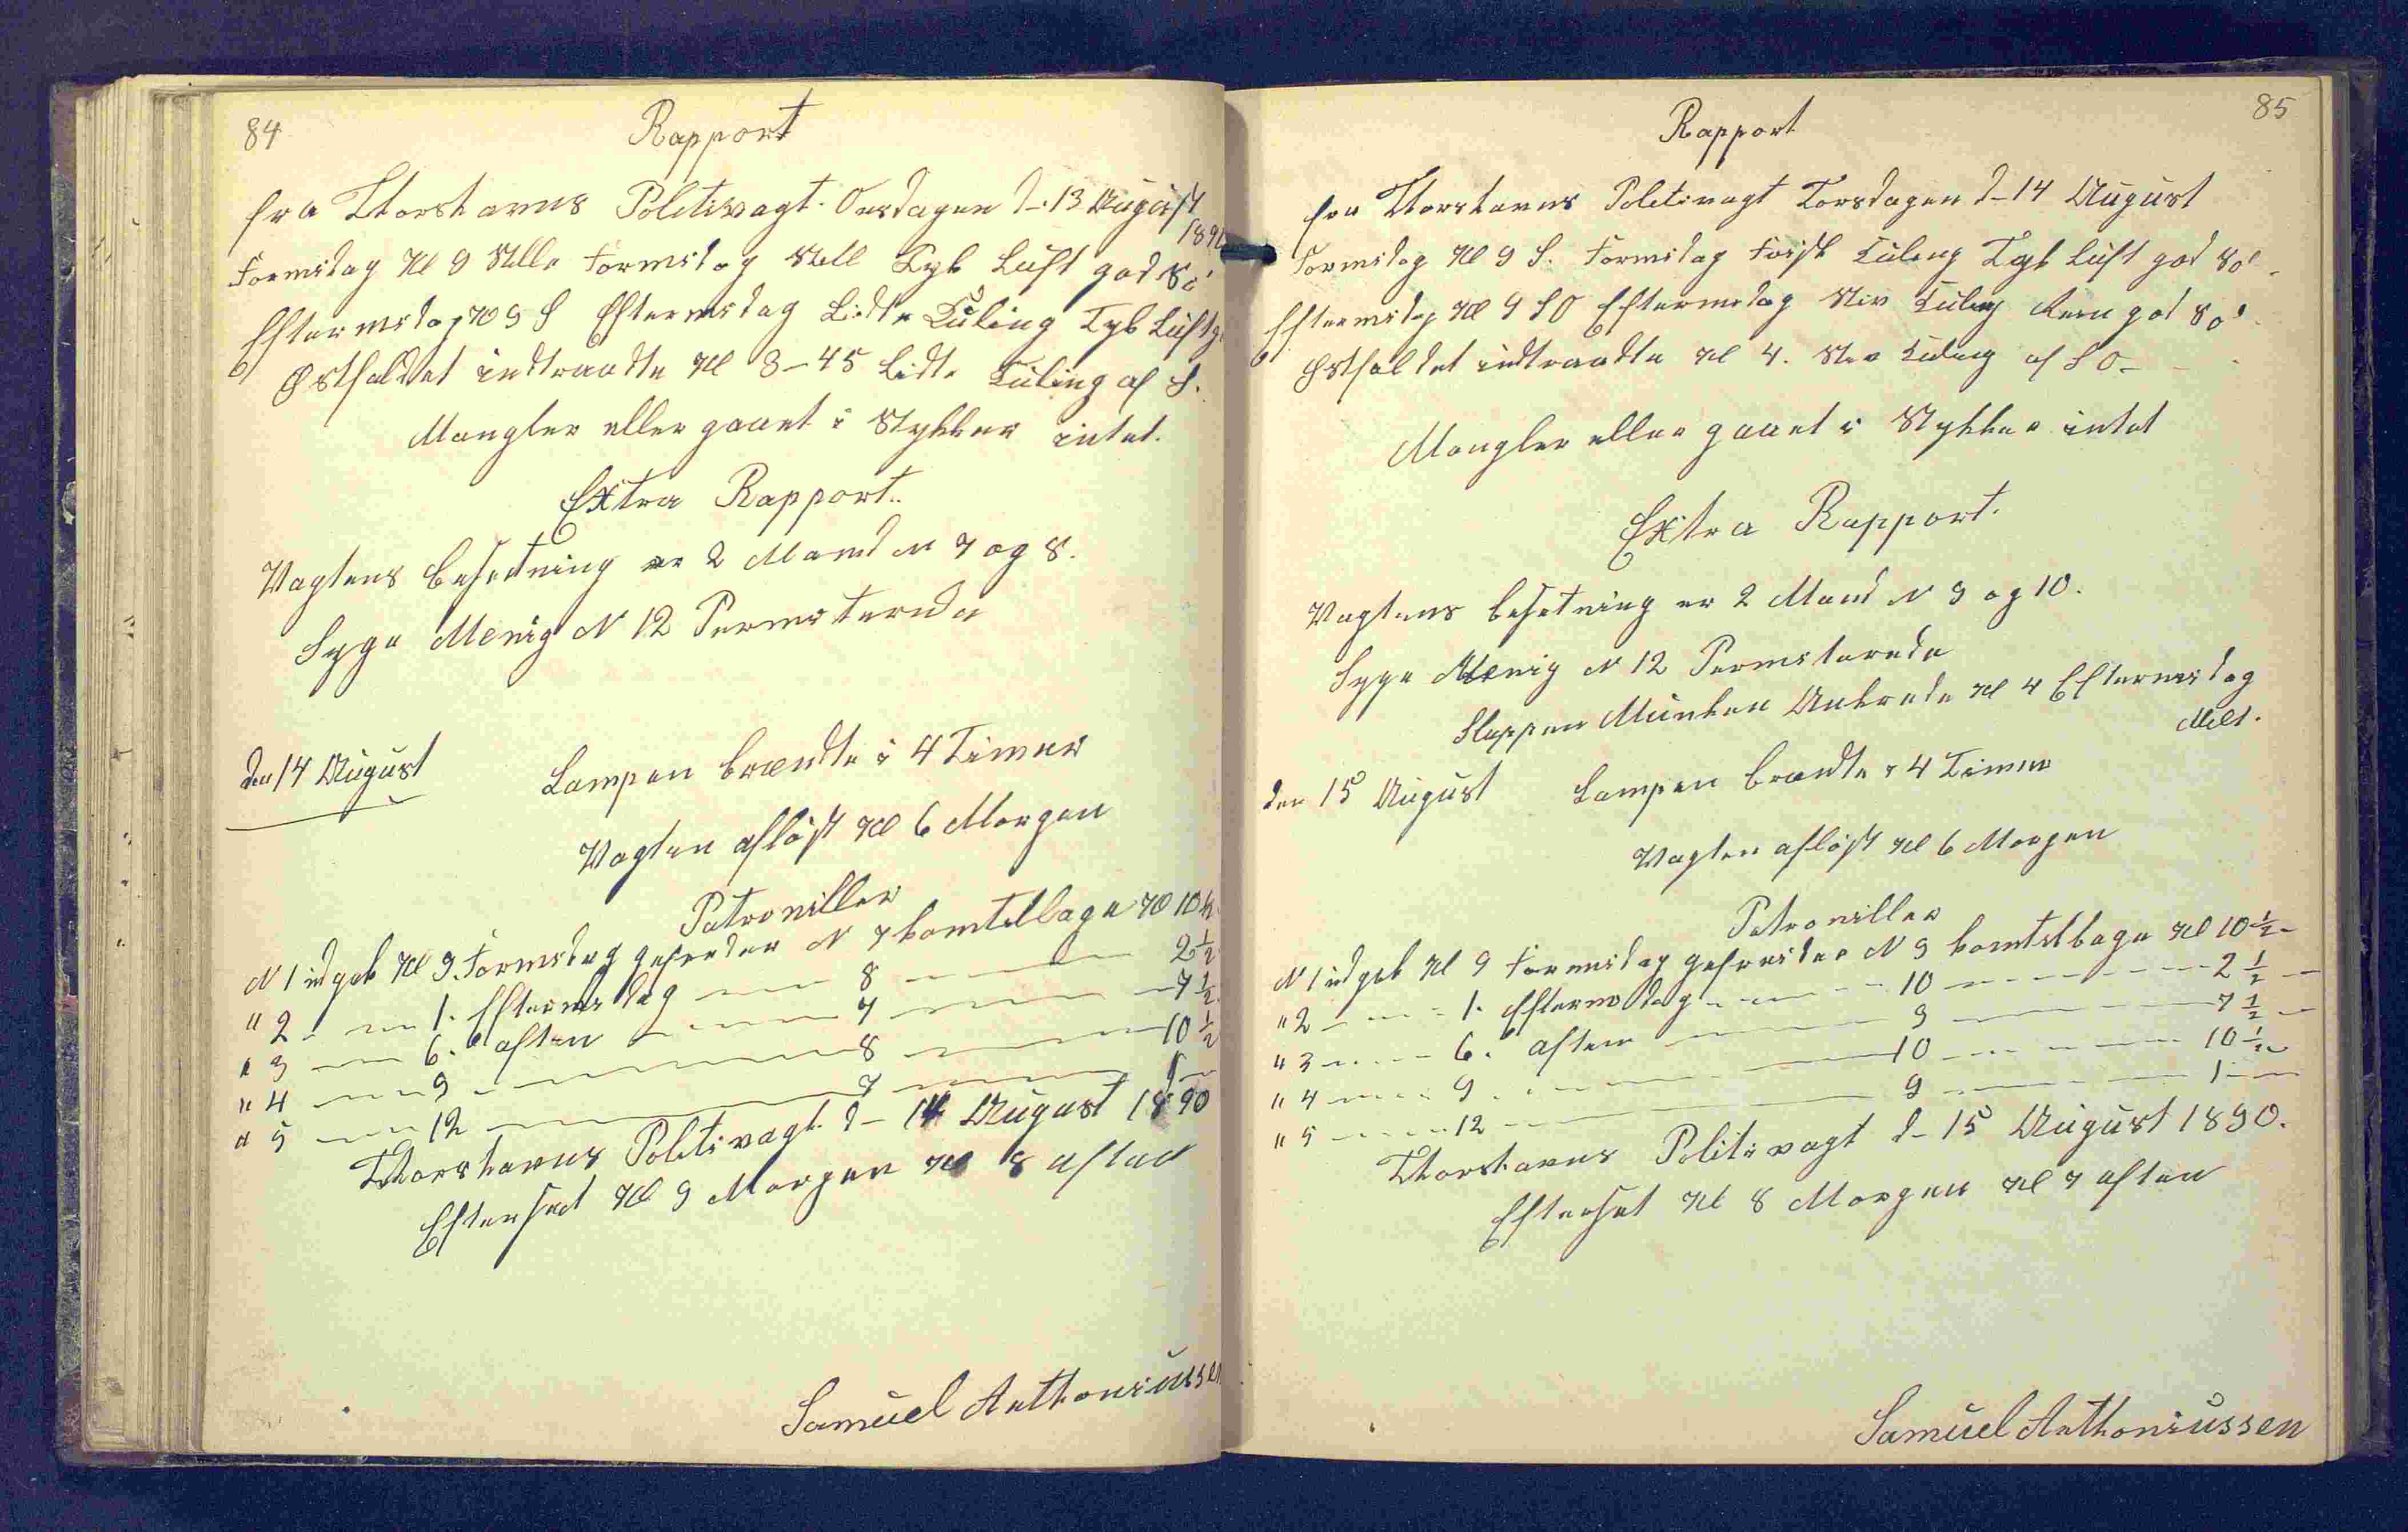 84
Rapport
fra Thorshavns Politivagt Onsdagen d. 13 August
1890
Formidag Kl 9 Stille Formidag Still Tyk Luft god Sö
Eftermidag Kl 9 S Eftermidag Lidte Kuling Tyk Luft
Østfaldet indtraadte Kl 3-45 Lidte Kuling af S.
Mangler eller gaaet i Stykker intet.
Extra Rapport..
Vagtens besætning er 2 Mand N 7 og 8.
Syge Menig N 12 Permiterede
den 14 August
Lampen brændte i 4 Timer
Vagten aflöst Kl 6 Morgen
Patroniller
N 1 udgik Kl 9. Formidag gefreider N 7 komtilbage Kl 10 ½
" 2 - — 1. Eftermidag — 8 — 2 ½
" 3 — 6. aften — 7 — 7 ½
" 4 — 9 — 8 — 10 ½
" 5 — 12 — 7 — 1 —
Thorshavns Politivagt d- 14 August 1890
Efterset Kl 9 Morgen Kl 8 aften
Samuel Anthoniussen
85
Rapport
fra Thorshavns Politivagt Torsdagen d- 14 August
Formidag Kl 9 S. Formidag Frisk Kuling Tyk Luft god Sö
Eftermidag Kl 9 SO Eftermidag Stiv Kuling Regn god Sö
Østfaldet indtraadte Kl 4. Stiv Kuling af SO-
Mangler eller gaaet i Stykker intet
Extra Rapport.
Vagtens besetning er 2 Mand N 9 og 10.
Syge Menig N 12 Permiterede
Sluppen Munken Ankrede Kl 4 Eftermidag
Meld.
den 15 August
Lampen brændte i 4 Timer
Vagten aflöst Kl 6 Morgen
Patroniller
N 1 udgik Kl 9 Formidag gefreider N 9 komtilbage Kl 10 ½
" 2 — 1. Eftermidag — 10 — 2 ½ —
" 3 — 6. aften — 9 — 7 ½ —
" 4 — 9 — 10 — 10 ½
" 5 — 12 — 9 — 1 —
Thorshavns Politivagt d- 15 August 1890.
Efterset Kl 8 Morgen Kl 7 aften
Samuel Anthoniussen